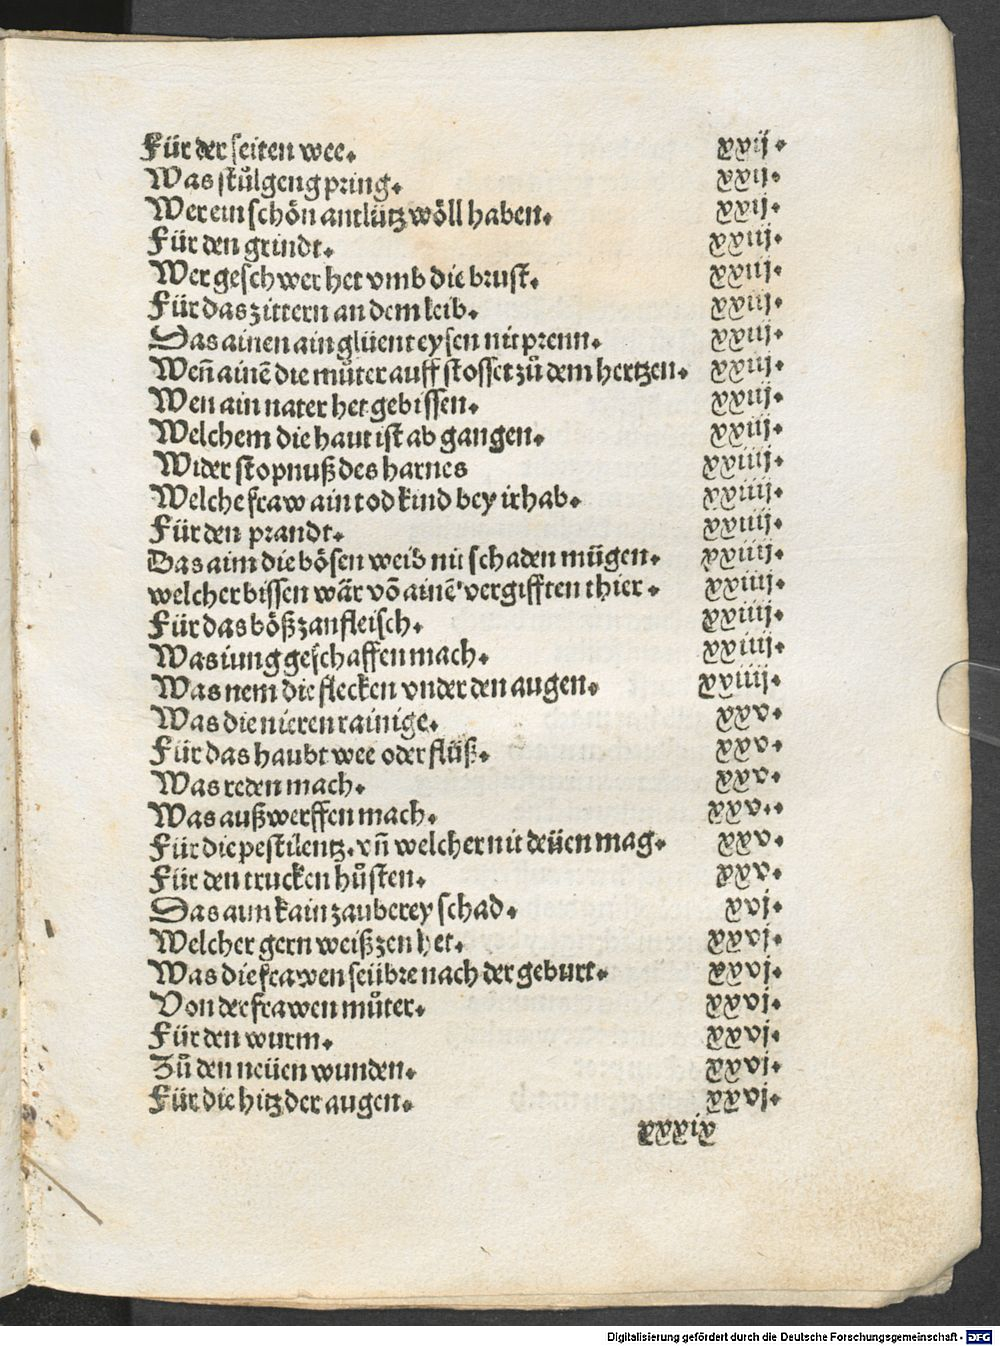 Für der seiten wee. xxij.
Was stůlgeng pring. xxij.
Wer ein schön antlütz wöll haben. xxij.
Für den grindt. xxiij.
Wer geschwer het vmb die brust. xxiij.
Für das zittern an dem leib. xxiij.
Das ainen ain glüent eysen nit prenn. xxiij.
Weñ ainē die můter auff stosset zů dem hertzen. xxiij.
Wen ain nater het gebissen. xxiij.
Welchem die haut ist ab gangen. xxiij.
Wider stopnuß des harnes xxiiij.
Welche fraw ain tod kind bey ir hab. xxiiij.
Für den prandt. xxiiij.
Das aim die bösen weib nit schaden mügen. xxiiij.
welcher bissen wär võ ainē vergifften thier. xxiiij.
Für das böß zanfleisch. xxiiij.
Was iung geschaffen mach. xxiiij.
Was nem die flecken vnder den augen. xxiiij.
Was die nieren rainige. xxv.
Für das haubt wee oder flüß. xxv.
Was reden mach. xxv.
Was außwerffen mach. xxv..
Für die pestilentz. vñ welcher nit deüen mag. xxv.
Für den trucken hůsten. xxv.
Das aim kain zauberey schad. xvj.
Welcher gern weiß zen het. xxvj.
Was die frawen seübre nach der geburt. xxvj.
Von der frawen můter. xxvj.
Für den wurm. xxvj.
Zů den neüen wunden. xxvj.
Für die hitz der augen. xxvj.
xxxix
Digitalisierung gefördert durch die Deutsche Forschungsgemeinschaft - DFG